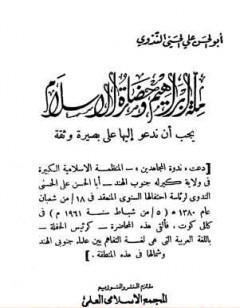 أبو الحسن علي الحسني الندوي
ملة إبراهيم وحضارة الإسلام
يجب أن ندعو إليها على بصيرة وثقة
[ دعت « ندوة المجاهدين » - المنظمة الاسلامية الكبيرة
في ولاية كيرله جنوب الهند - أبا الحسن علي الحسني
الندوي لرئاسة احتفالها السنوي المنعقد في ١٨/ من شعبان
عام ١٣٨٠ ( ٥ / من شباط سنة ١٩٦١ م ) في
كلي كوت، فألقى هذه المحاضرة - كرئيس الحفلة -
باللغة العربية التي هي لغة التفاهم بين علماء جنوبي الهند
وشمالها في هذه المنطقة . ]
ملتزم النشر والتوزيع
المجمع الإسلامي العلمي